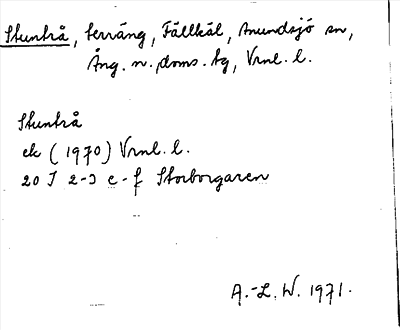 Stuntrå, terräng, Fällkäl, Anundsjö sn,
Ång. n. doms. tg, Vrnl. l.
Stuntrå
ek (1970) Vrnl. l.
20 J 2-3 e-f Storborgaren
A.-L. W. 1971.